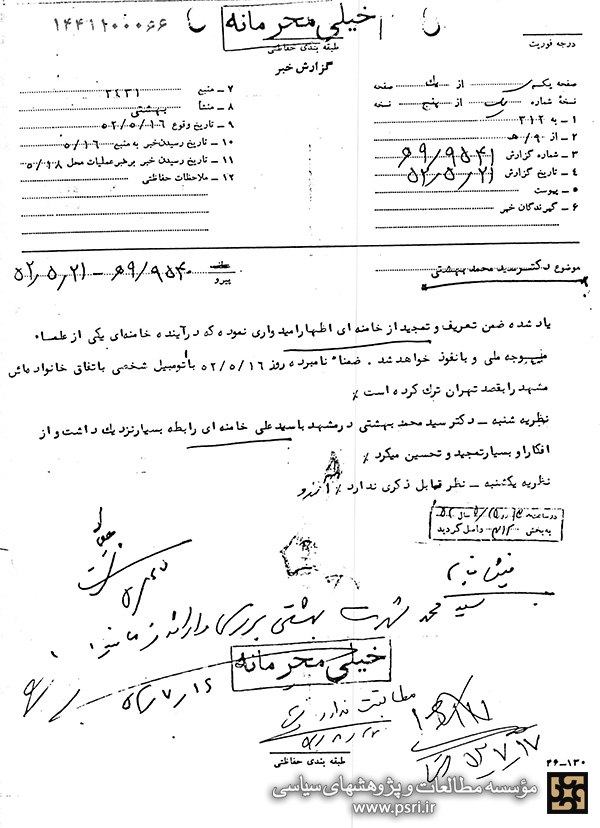 ۱۴۴۱۲۰۰۰۶۶
خیلی محرمانه
طبقه بندی حفاظتی
گزارش خبر
درجه فوریت
صفحه یکم از یک صفحه
نسخهٔ شماره یک از پنج نسخه
۱ ــ به ۳۱۲
۲ ــ از ۹/ هـ
۳ ــ شماره گزارش ۹۵۴۱/ ۹هـ
۴ ــ تاریخ گزارش ۵۲٫۵٫۲۱
۵ ــ پیوست
۶ ــ گیرندگان خبر
۷ ــ منبع ۲۴۳۱
۸ ــ منشأ بهشتی
۹ ــ تاریخ وقوع ۵۲/۵/۱۶
۱۰ ــ تاریخ رسیدن خبر به منبع ۵/۱۶
۱۱ ــ تاریخ رسیدن خبر برهبر عملیات محل ۵/۱۸
۱۲ ــ ملاحظات حفاظتی
موضوع دکتر سید محمد بهشتی
پیرو ۹۵۴۰/ ۹هـ – ۵۲٫۵٫۲۱
یاد شده ضمن تعریف و تمجید از خامنه ای اظهار امیدواری نموده که در آینده خامنه‌ای یکی از علماء
وجه ملی و با نفوذ خواهد شد . ضمناً نامبرده روز ۵۲/۵/۱۶ با اتومبیل شخصی باتفاق خانواده‌اش
مشهد را بقصد تهران ترک کرده است ٪
نظریه شنبه ــ دکتر سید محمد بهشتی در مشهد با سید علی خامنه ای رابطه بسیار نزدیک داشت و از
افکار او بسیار تمجید و تحسین میکرد ٪
نظریه یکشنبه ــ نظر قابل ذکری ندارد ٪ آرزو
در ساعت روز سال ۵۲
به بخش ۳۱۲ داخل گردید
سید محمد شهرت بهشتی بررسی و ارائه فرمائید
خیلی محرمانه
۵۲٫۷٫۱۶
سابقت ندارد
طبقه بندی حفاظتی
۵۲٫۷٫۱۷
۴۶ــ۱۳۰
مؤسسه مطالعات و پژوهشهای سیاسی
www.psri.ir